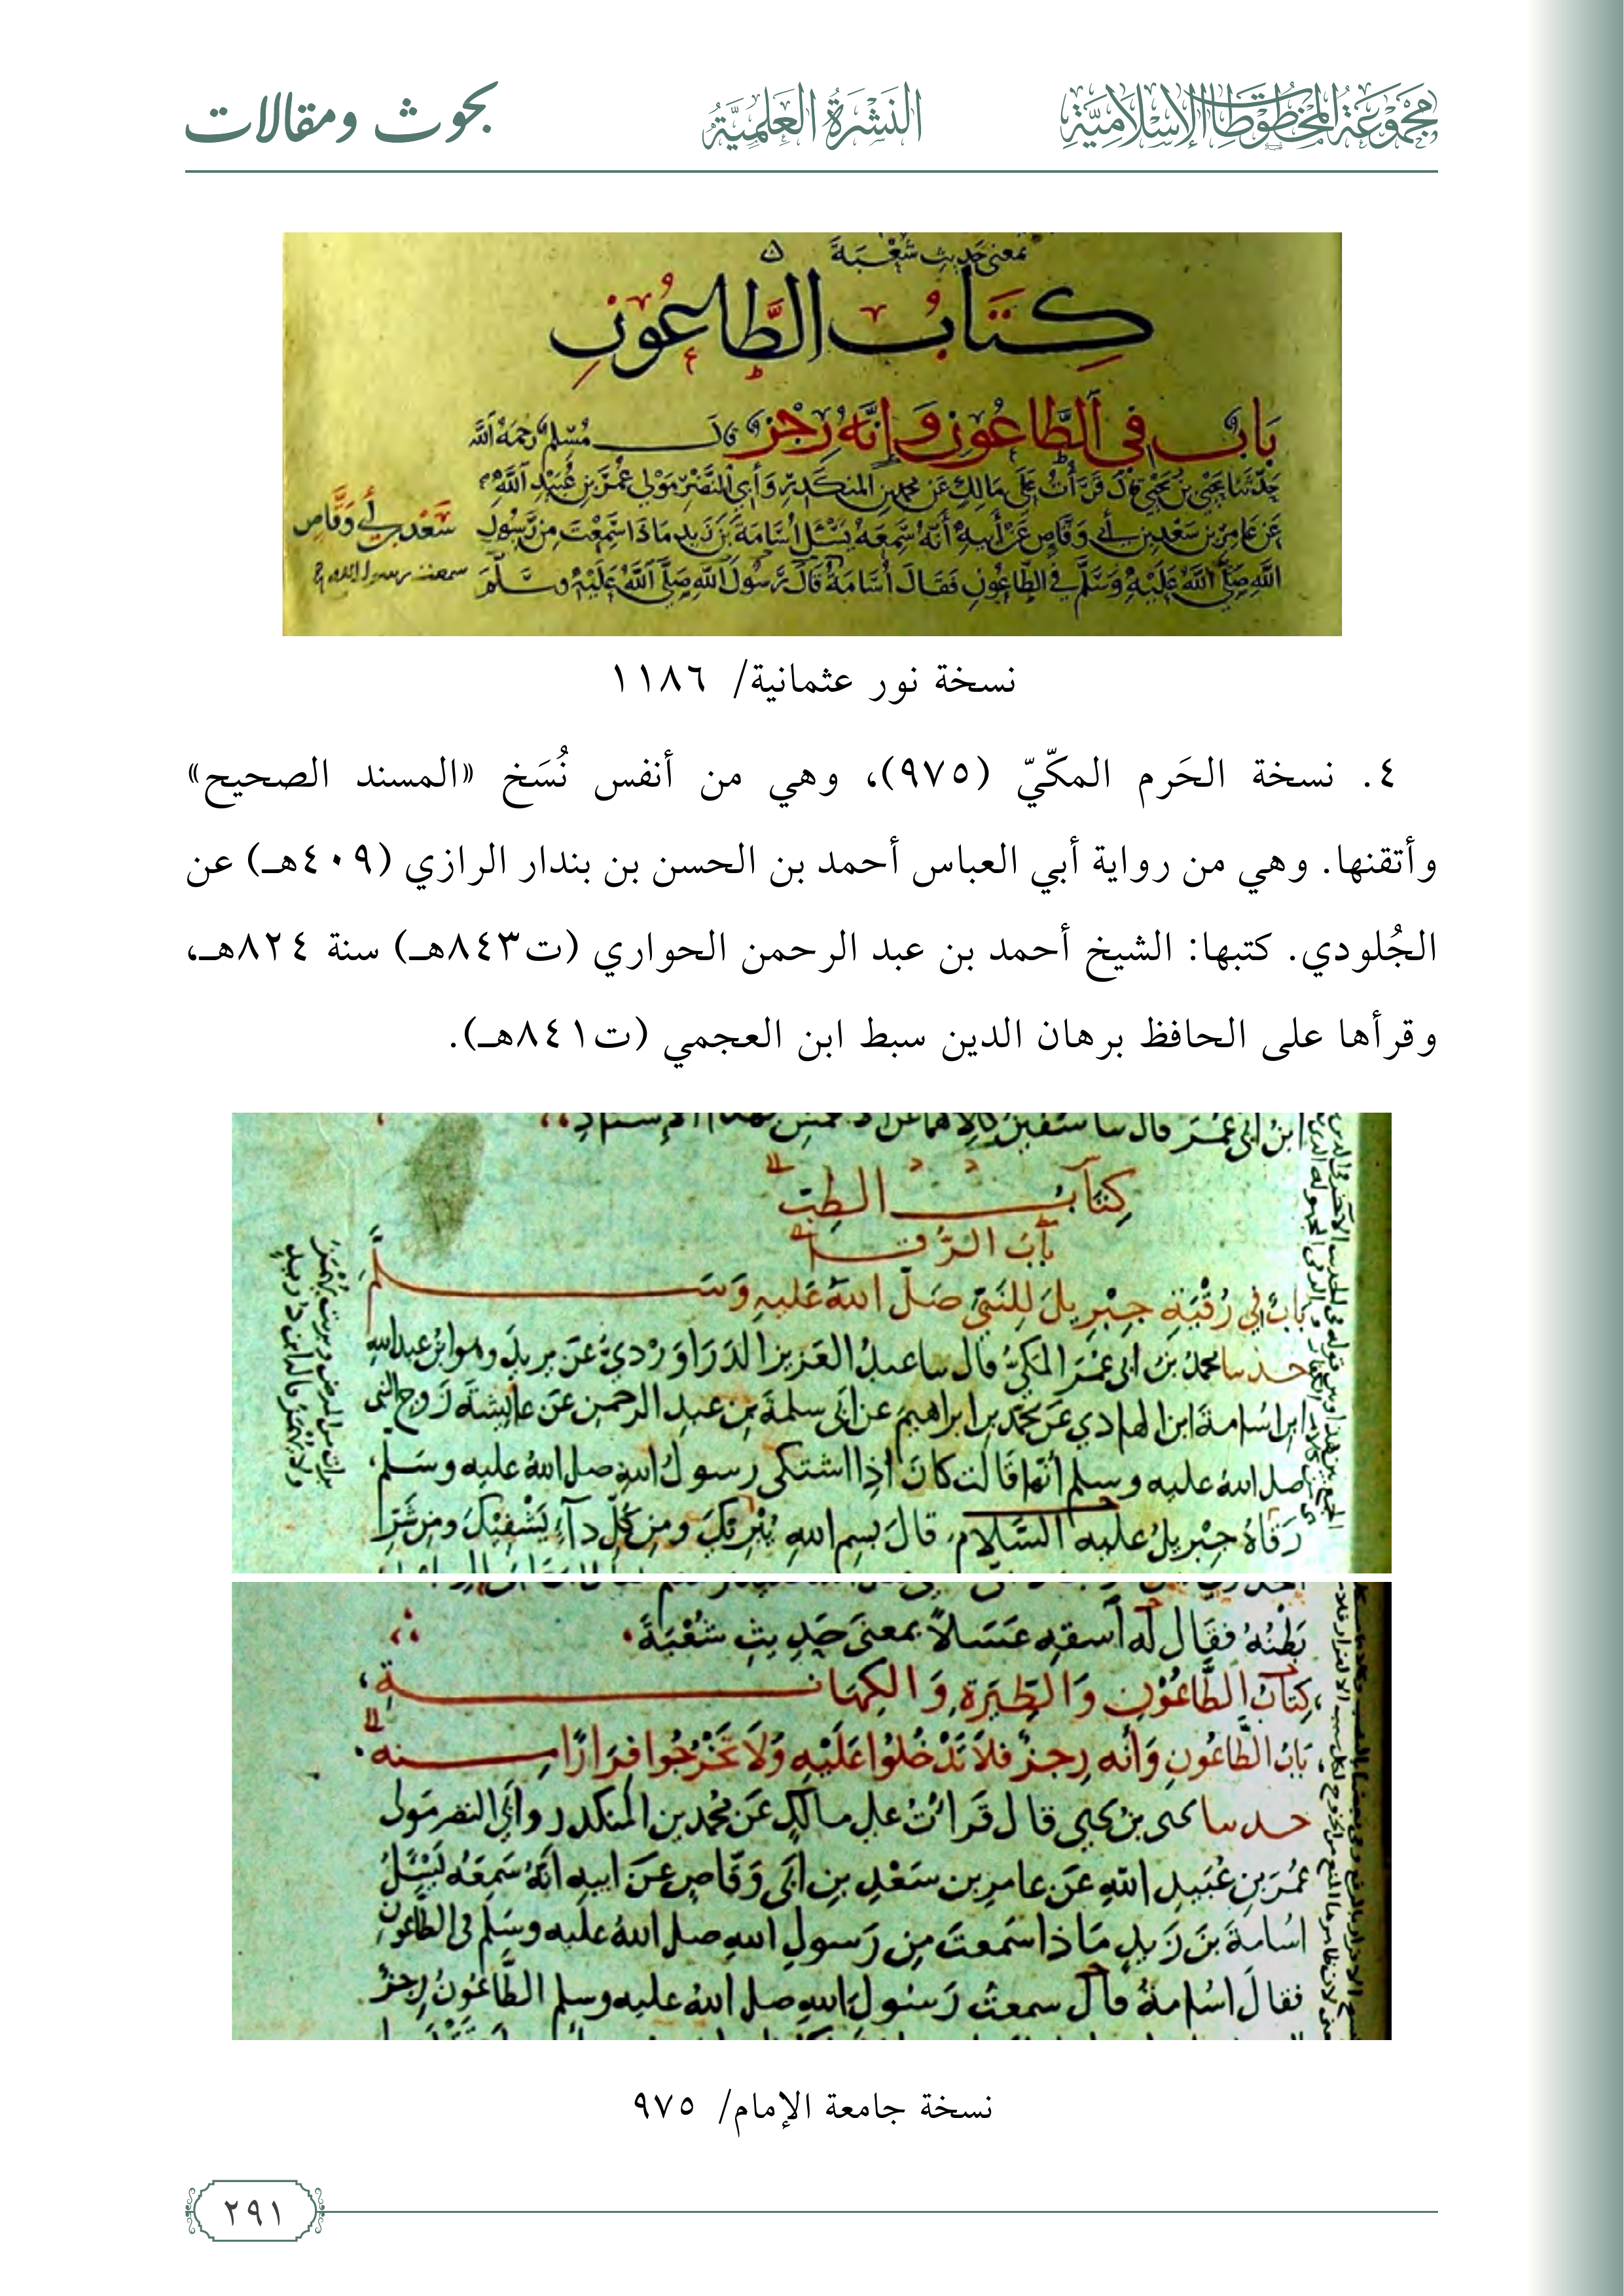 مجموعة المخطوطات الإسلامية
النَّشْرَةُ العِلْمِيَّةُ
بحوث ومقالات
بمعنى حديث شُعْبَةَ
كِتَابُ الطَّاعُونِ
بَابٌ في الطَّاعُونِ وَإِنَّهُ رِجْزٌ قال مُسْلِم رَحِمَهُ اللَّه
حَدَّثَنَا يَحْيَى بن يَحْيَى قال قَرَأْتُ عَلَى مَالِكٍ عَن مُحمد بنِ المنكَدِرِ وَأَبي النَّضْرِ مَوْلى عُمَرَ بنِ عُبَيْدِ اللَّه
عَن عَامِر بن سَعْدِ بن أبي وَقَّاصٍ عَنْ أَبيهِ أَنَّهُ سَمِعَهُ يَسْئَلُ أُسَامَةَ بْنَ زَيدٍ مَاذَا سَمِعْتَ مِن رَسُولِ
اللَّهِ صَلَّى اللَّهُ عَلَيْهِ وَسَلَّم في الطَّاعُونِ فَقَالَ أُسَامَةُ قَالَ رَسُولُ اللَّهِ صَلَّى اللَّهُ عَلَيْهِ وَسَلَّمَ
سَعْد بن أبي وَقَّاصٍ
سمعت رسول الله
نسخة نور عثمانية/ ١١٨٦
٤. نسخة الحَرم المكّيّ (٩٧٥)، وهي من أنفس نُسَخ «المسند الصحيح»
وأتقنها. وهي من رواية أبي العباس أحمد بن الحسن بن بندار الرازي (٤٠٩هـ) عن
الجُلودي. كتبها: الشيخ أحمد بن عبد الرحمن الحواري (ت٨٤٣هـ) سنة ٨٢٤هـ،
وقرأها على الحافظ برهان الدين سبط ابن العجمي (ت٨٤١هـ).
ابن ابى عُمَرَ قال سا سُفين
كِتَابُ الطِبّ
بَابُ الرُّقَا
بَابٌ في رُقْيَةِ جِبْرِيلَ لِلنَّبِيّ صَلّى اللهُ عَليهِ وَسَلَّمَ
حدسا محمدُ بنُ ابى عُمَرَ المكيُّ قال سا عبدُ العَزيزِ الدَرَاوَرْديُّ عَن يزيدَ وهو ابن عبدالله
ابنِ اسُامةَ ابن الهادي عَن محمّد بن ابراهيمَ عن ابى سلمةَ بن عبدِ الرحمن عَن عائشةَ زوج النبى
صلى اللهُ عليه وسلم أنّها قَالت كانَ اذا اشتكى رسولُ اللهِ صلى اللهُ عليه وسَلم
رَقَاهُ جِبْرِيلُ عليه السَّلام، قالَ بسمِ اللهِ يُبْرِيكَ ومِن كلِّ دآءٍ يَشْفِيكَ ومِن شَرِّ
بَطْنُهُ فقَال لهُ اسقهِ عَسَلاً بمعنى حَدِيثِ شُعْبَةَ
كِتابُ الطَّاعُوْنِ وَالطِّيَرَةِ وَالكِهَانَةِ
بَابُ الطَّاعُونِ وَأنه رِجزٌ فلاَ تَدْخُلوُا عَلَيْهِ وَلاَ تَخْرُجُوا فِرَارًا مِنه
حدسا يحيى بنُ يحيى قال قَرَأتُ على مالكٍ عَن محمد بن المنكدر وأبي النضر مَولى
عُمَرَ بنِ عُبَيدِ اللهِ عَن عامرِ بن سَعْدِ بنِ ابى وَقّاصٍ عَن ابيهِ انّهُ سَمِعَه يَسْئَلُ
اسُامةَ بنَ زَيدٍ مَاذا سَمعتَ مِن رَسولِ اللهِ صلى اللهُ عليه وسَلم في الطَّاعُونِ
فقالَ اسُامةُ قالَ سمعتُ رَسُولَ اللهِ صلى اللهُ عليه وسلم الطَّاعُونُ رِجزٌ
نسخة جامعة الإمام/ ٩٧٥
٢٩١